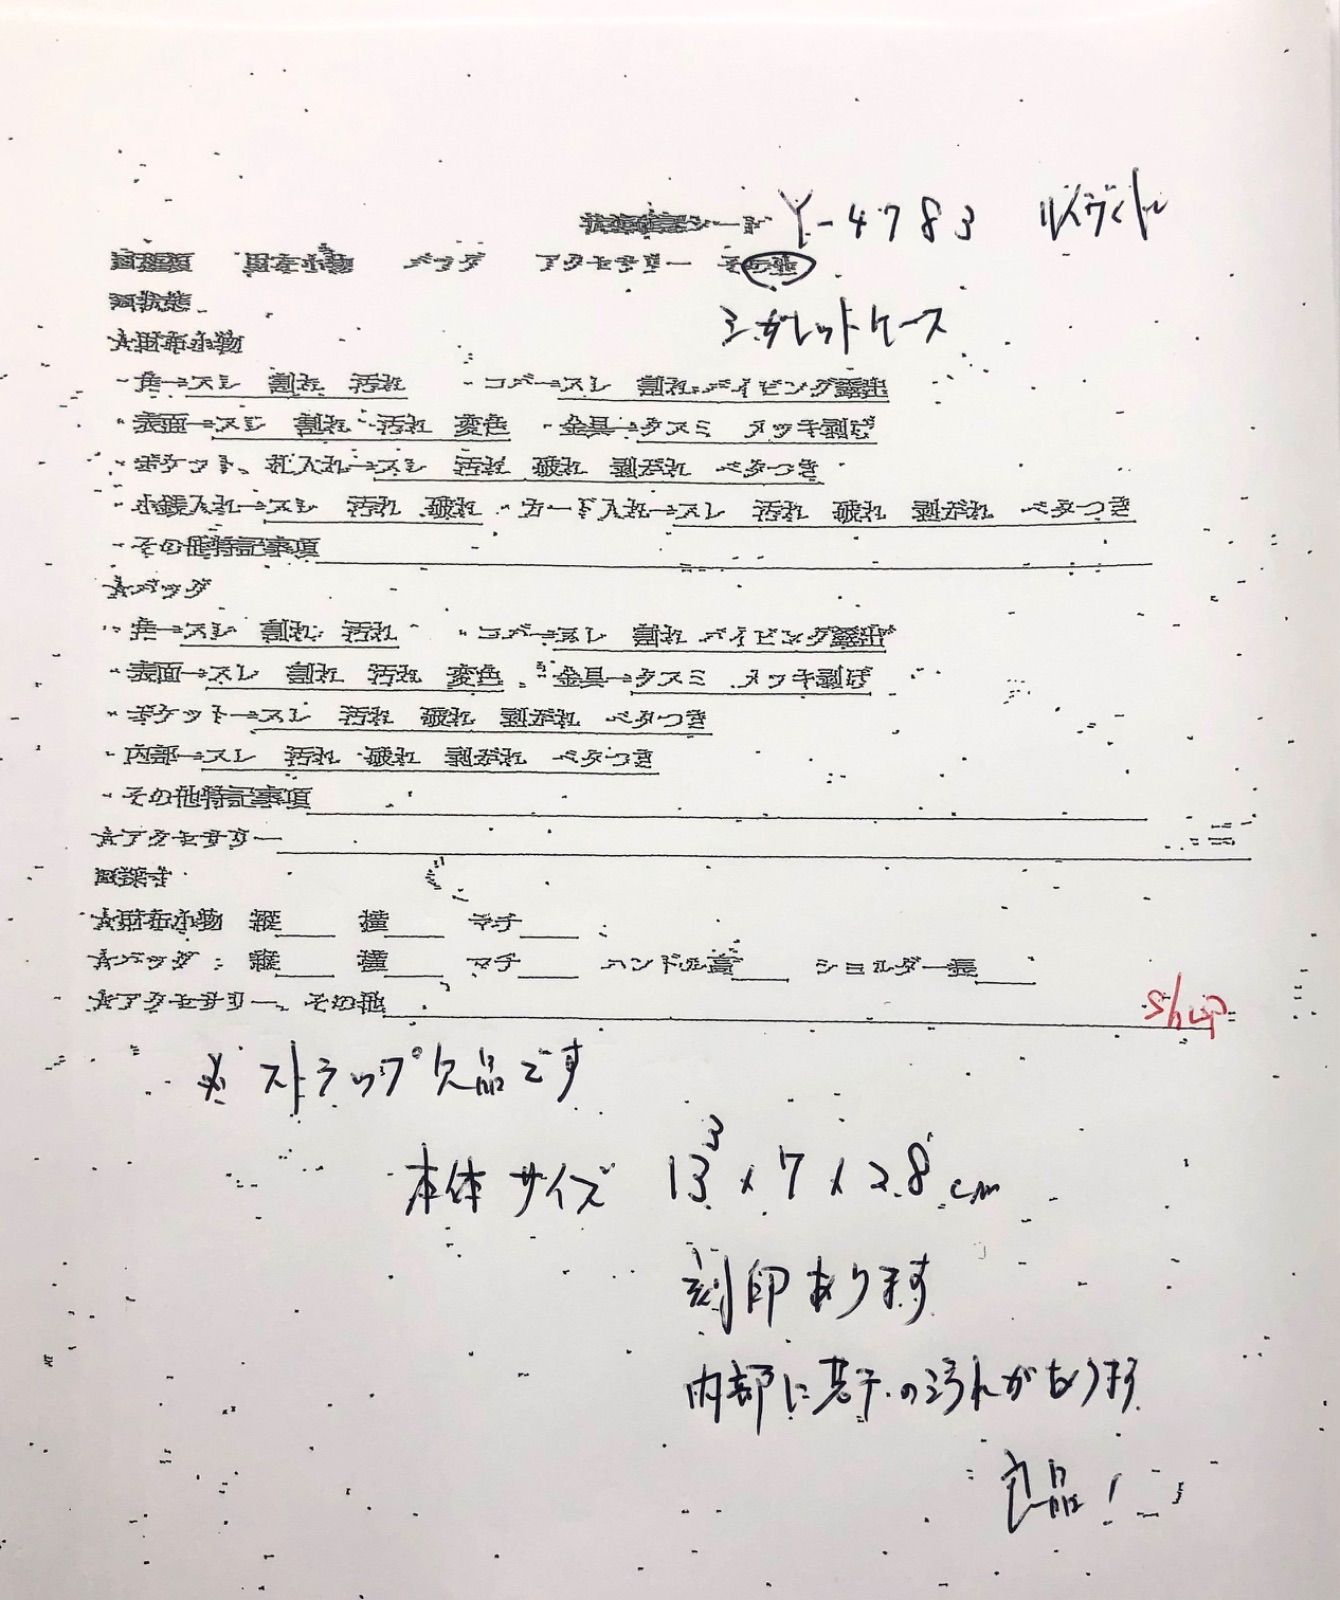 状態確認シート Y-4783 ルイヴィトン
財布小物 バッグ アクセサリー その他
シガレットケース
☆財布小物
・角→スレ 割れ 汚れ ・コバ→スレ 割れ パイピング露出
・表面→スレ 割れ 汚れ 変色 ・金具→クスミ メッキ剥げ
・ポケット、札入れ→スレ 汚れ 破れ 剥がれ ベタつき
・小銭入れ→スレ 汚れ 破れ ・カード入れ→スレ 汚れ 破れ 剥がれ ベタつき
・その他特記事項
☆バッグ
・角→スレ 割れ 汚れ ・コバ→スレ 割れ パイピング露出
・表面→スレ 割れ 汚れ 変色 ・金具→クスミ メッキ剥げ
・ポケット→スレ 汚れ 破れ 剥がれ ベタつき
・内部→スレ 汚れ 破れ 剥がれ ベタつき
・その他特記事項
☆アクセサリー
採寸
☆財布小物 縦 横 マチ
☆バッグ: 縦 横 マチ ハンドル高 ショルダー長
☆アクセサリー、その他
※ストラップ欠品です
本体サイズ 13³×7×2.8cm
刻印あります
内部に若干の汚れがあります
良品!